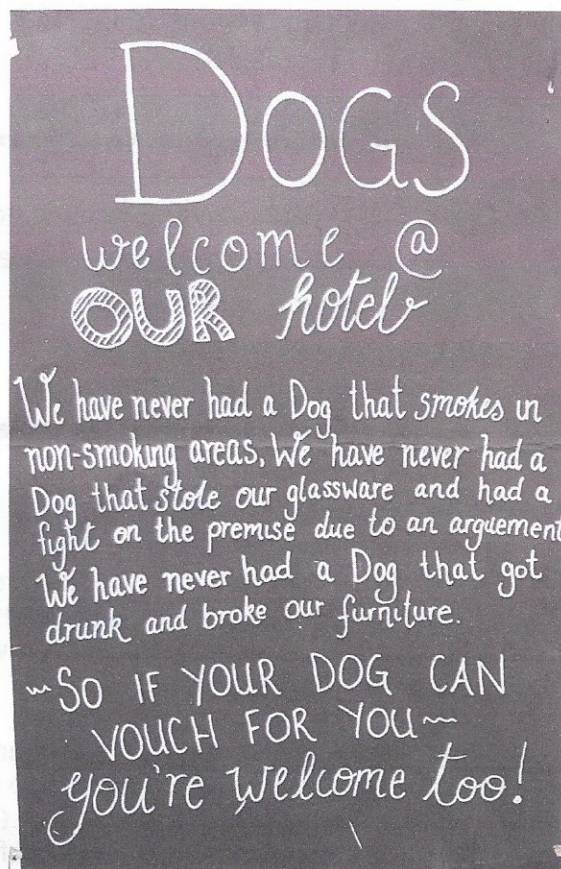 DOGS
welcome @
OUR hotel
We have never had a Dog that smokes in
non-smoking areas, We have never had a
Dog that stole our glassware and had a
fight on the premise due to an arguement
We have never had a Dog that got
drunk and broke our furniture.
~SO IF YOUR DOG CAN
VOUCH FOR YOU~
you're welcome too!